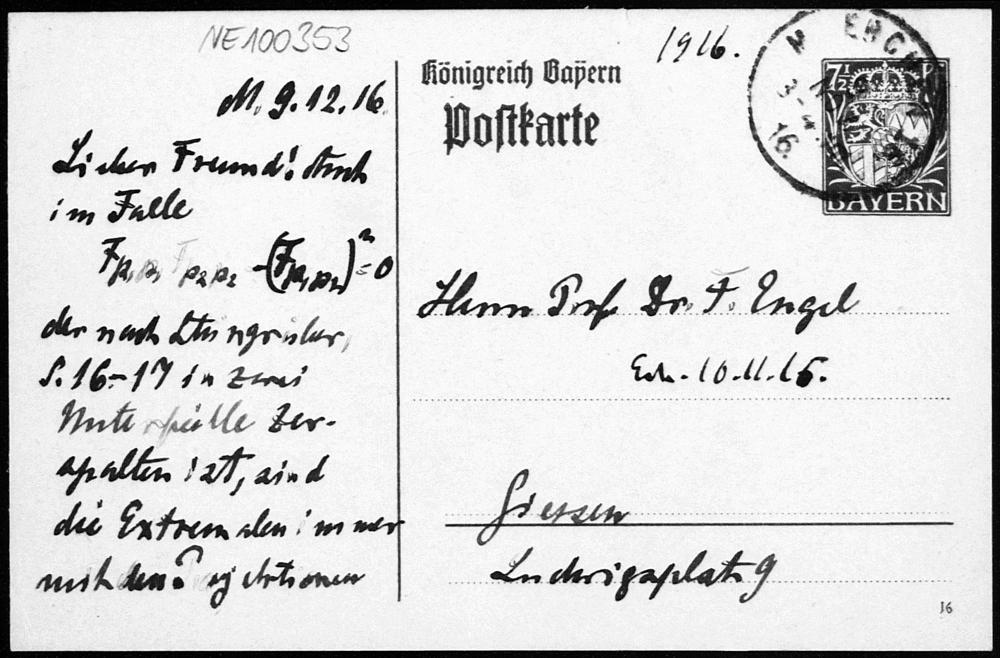 NE100353
1916.
M. 9.12.16
Lieber Freund! Auch
im Falle
Fp₁p₁ Fp₂p₂ - (Fp₁p₂)² = 0
der nach
S. 16-17 in zwei
Unterfälle zer-
spalten ist, sind
die Extremalen immer
mit den Projektionen
Königreich Bayern
Postkarte
7½ P
BAYERN
3-4
16
Herrn Prof. Dr. F. Engel
Giessen
Ludwigsplatz 9
16